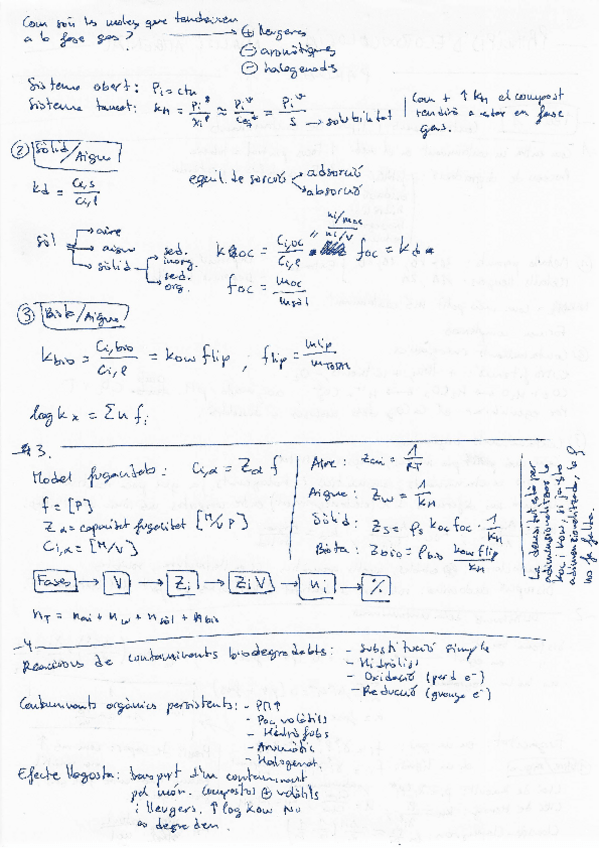 Com són les molec. que tendeixen
a la fase gas? → ⊕ lleugeres
⊖ aromàtiques
⊖ halogenades
Sistema obert: Pi = ctn
Sistema tancat: KH = Pi*/xi^l ≈ Pi^v/Ceq* = Pi^v/S → solubilitat
Com + ↑ KH el compost
tendirà a estar en fase
gas.
② Sòlid/Aigua
Kd = Ci,s/Ci,l
equil. de sorció → adsorció
→ absorció
sòl → aire
→ aigua
→ sòlid → sed. inorg.
→ sed. org.
Koc = Ci,oc/Ci,l
ni/moc
ni/V
foc = Kd
foc = moc/msòl
③ Biota/Aigua
Kbio = Ci,bio/Ci,l = Kow flip , flip = mlip/mtotal
log Kx = Σ n fi
3.
Model fugacitats: Ci,α = Zα f
f = [P]
Zα = capacitat fugacitat [M/V P]
Ci,α = [M/V]
Aire: Zai = 1/RT
Aigua: Zw = 1/KH
Sòlid: Zs = ρs Koc foc · 1/KH
Biota: Zbio = ρbio Kow flip/KH
La densitat està per
adimensionalitzar
Koc i Kow, si ja està
adimensionalitzada, la ρ
no fa falta.
Fases → V → Zi → Zi V → ni → %
nT = nai + nw + nsòl + nbio
4
Reaccions de contaminants biodegradables: - Substitució simple
- Hidròlisi
- Oxidació (perd e-)
- Reducció (guanya e-)
Contaminants orgànics persistents: - PM↑
- Poc volàtils
- Hidròfobs
- Aromàtic
- Halogenat.
Efecte llagosta: transport d'un contaminant
pel món. Compostos ⊕ volàtils
i lleugers. ↑ log Kow No
es degraden.